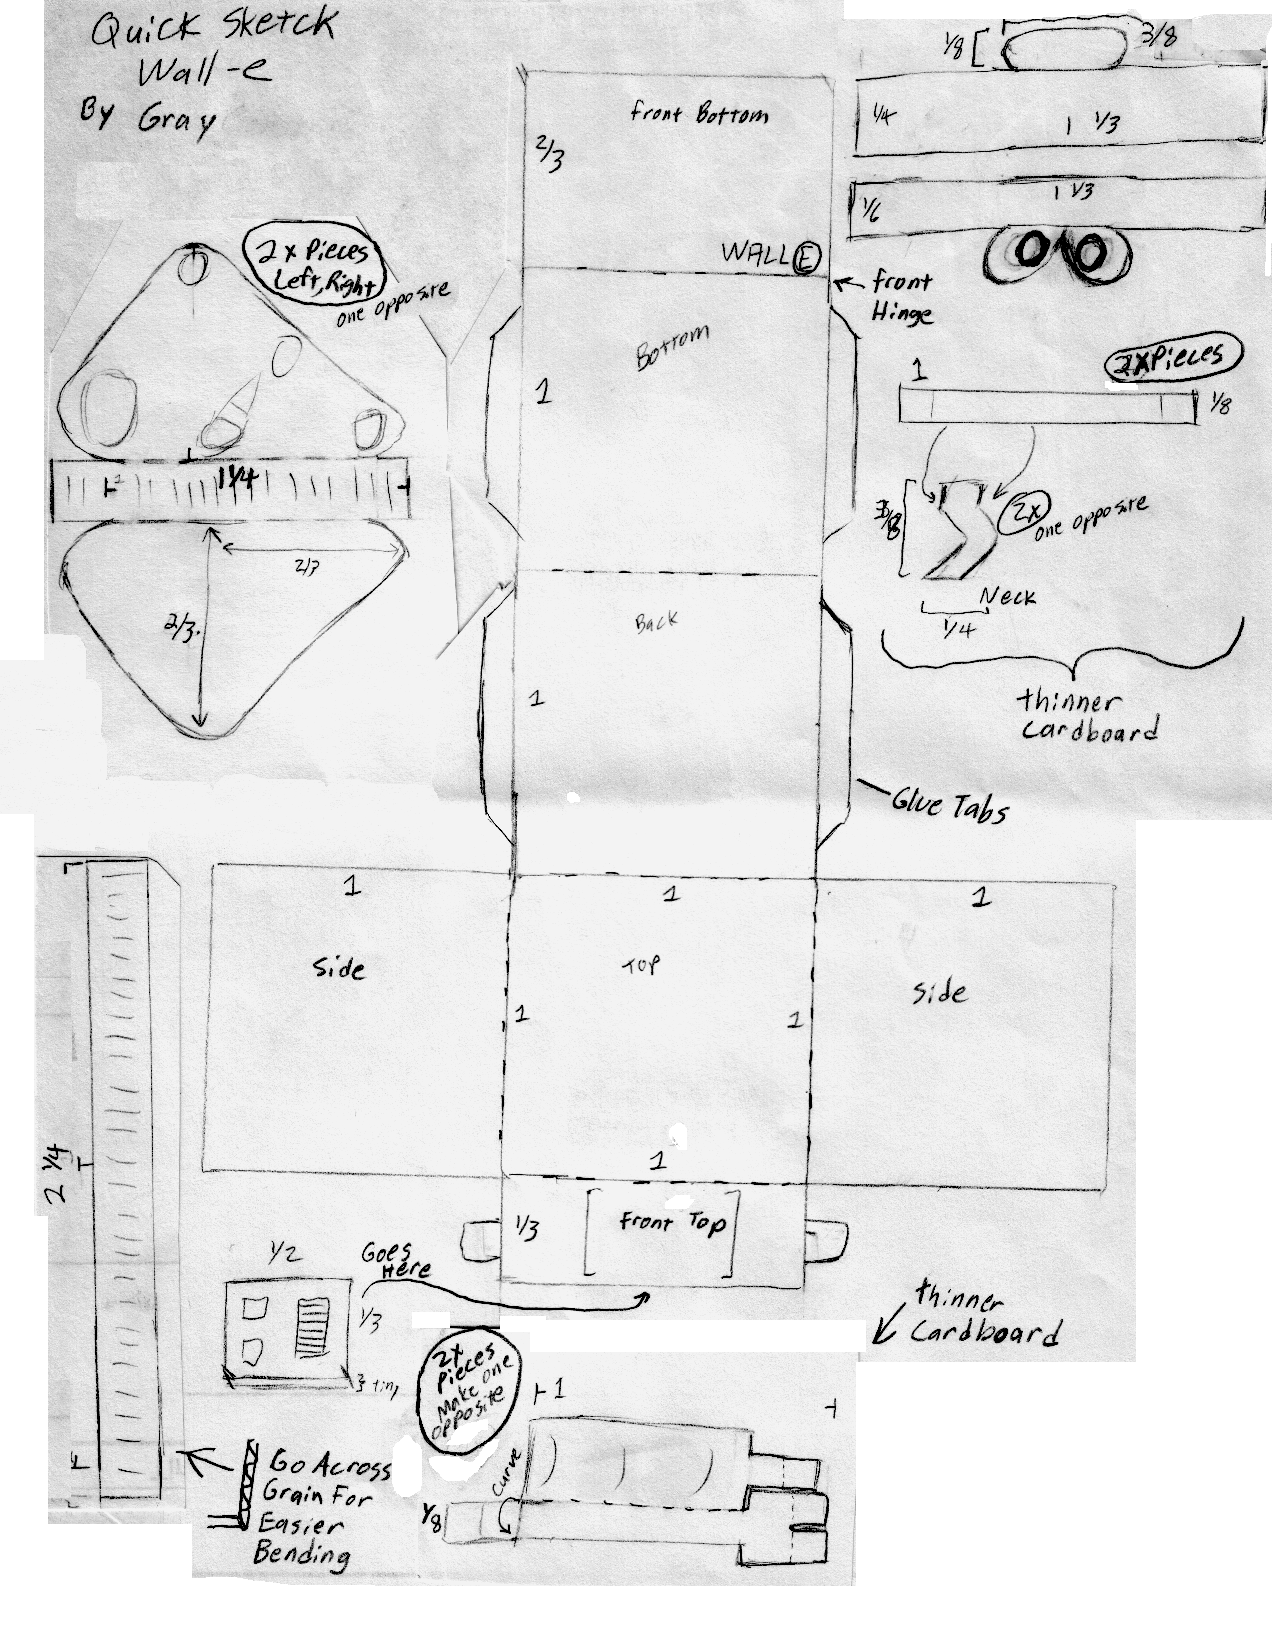 Quick Sketch
Wall-e
By Gray
2x Pieces
Left, Right
one opposite
1 1/4
2/3
2/3
Front Bottom
2/3
WALL E
Front
Hinge
Bottom
1
Back
1
Glue Tabs
1/8
3/8
1/4
1 1/3
1/6
1 1/3
2x Pieces
1
1/8
3/8
2x
one opposite
Neck
1/4
thinner
Cardboard
1
Side
1
Top
1
1
1
1
Side
1/3
Front Top
2 1/4
1/2
1/3
Goes
Here
thinner
Cardboard
2x
Pieces
Make one
opposite
1
Curve
1/8
Go Across
Grain For
Easier
Bending